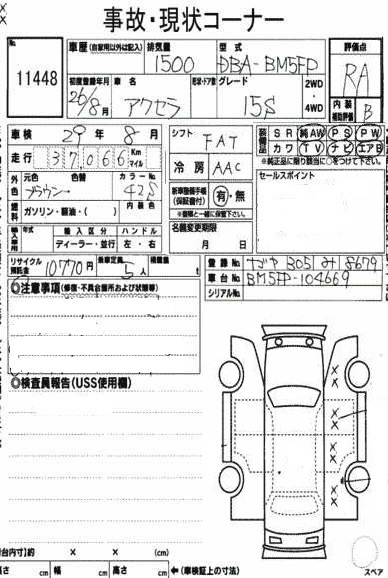 事故・現状コーナー
No. 11448
車歴 (自家用以外は記入) 排気量 1500 型式 DBA-BM5FP
評価点 RA
初度登録年月 26/8月 車名 アクセラ 形状・ドア数 グレード 15S 2WD・4WD
内装補助評価 B
車検 29年 8月
走行 37066 Km マイル
外色 元色 ブラウン 色替 カラーNo. 42S
燃料 ガソリン・軽油・( ) 内装色
輸入車用 年式 輸入区分 ハンドル
ディーラー・並行 左・右
リサイクル預託金 10770円 乗車定員 5人 積載量 t
シフト FAT
冷房 AAC
新車整備手帳(保証書付) 有・無
※書類と一緒に保管下さい。
名義変更期限
月 日
装備品 SR 純AW PS PW
カワ TV ナビ エアB
※純正品に限り該当に○をつけて下さい。
セールスポイント
登録No.
車台No. BM5FP-104669
シリアルNo.
◎注意事項(修復・不具合箇所および状態等)
◎検査員報告(USS使用欄)
X
X
X
X
X
X
X
X
荷台内寸)約 × × (cm)
長さ cm 幅 cm 高さ cm ←(車検証上の寸法)
スペア